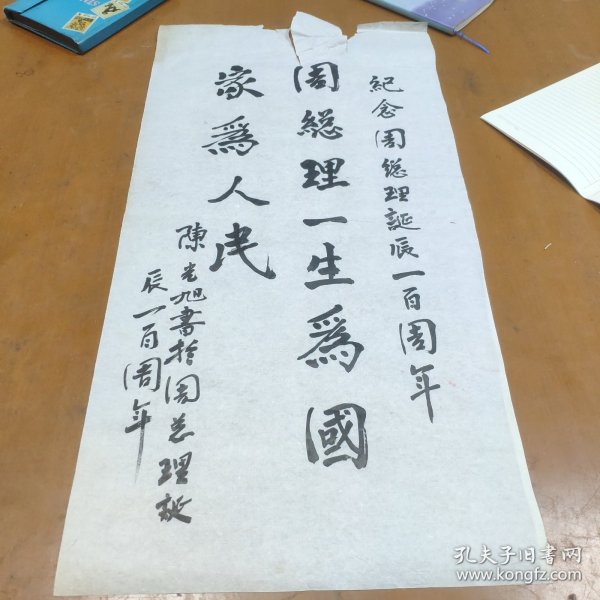 紀念周總理誕辰一百周年
周總理一生爲國
家爲人民
陳光旭書於周总理誕
辰一百周年
孔夫子旧书网
www.kongfz.com